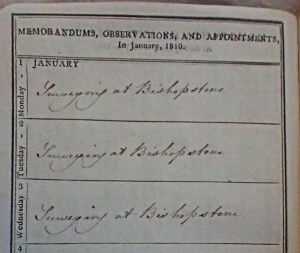 MEMORANDUMS, OBSERVATIONS, AND APPOINTMENTS,
In January, 1810.
1 JANUARY
Monday
Surveying at Bishopstone
2
Tuesday
Surveying at Bishopstone
3
Wednesday
Surveying at Bishopstone
4